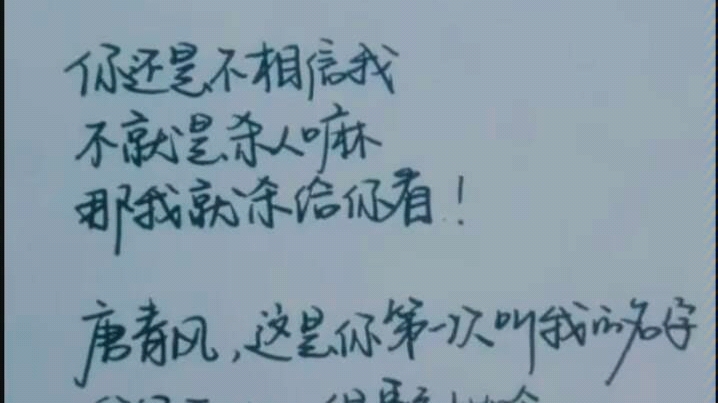 你还是不相信我
不就是杀人嘛
那我就杀给你看！
唐青风，这是你第一次叫我的名字